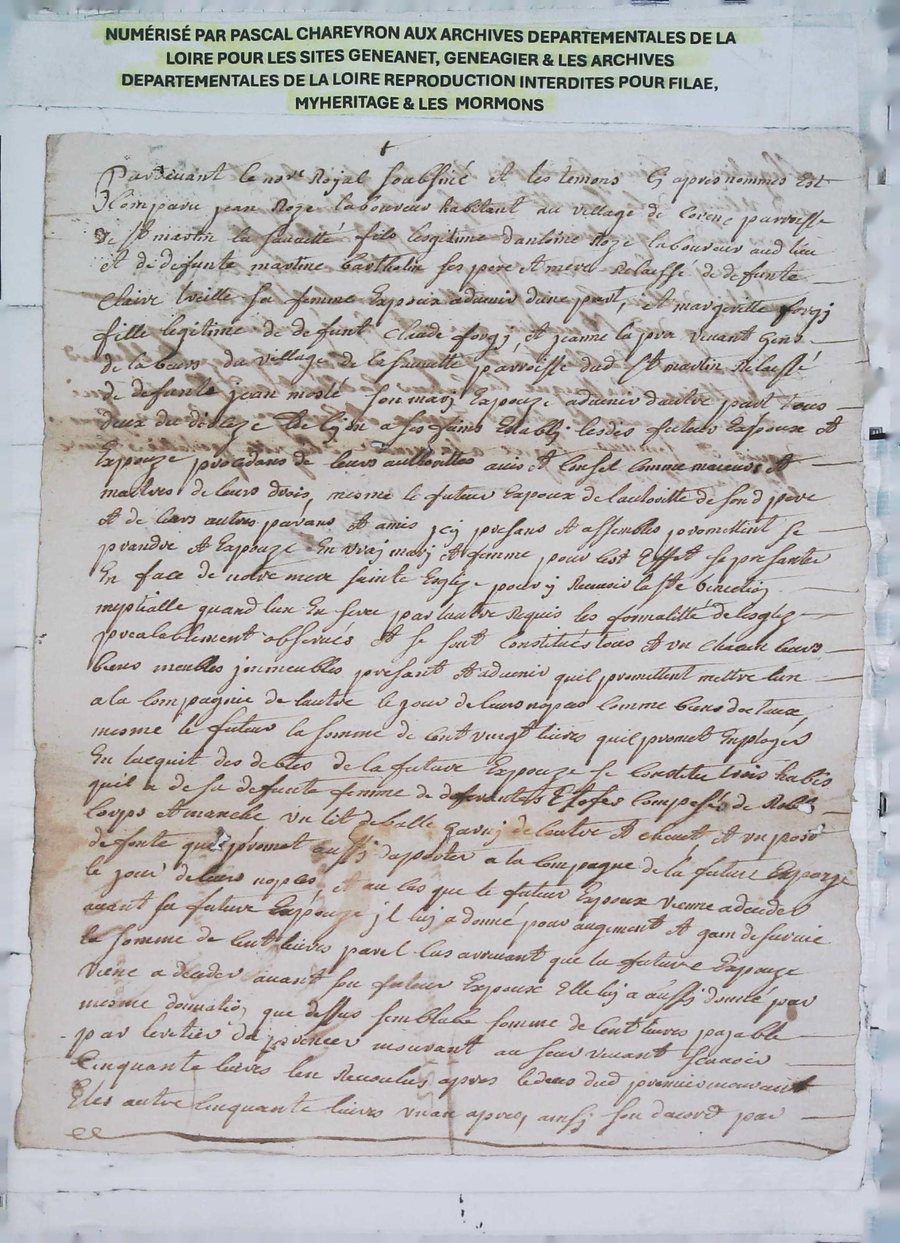 NUMÉRISÉ PAR PASCAL CHAREYRON AUX ARCHIVES DEPARTEMENTALES DE LA
LOIRE POUR LES SITES GENEANET, GENEAGIER & LES ARCHIVES
DEPARTEMENTALES DE LA LOIRE REPRODUCTION INTERDITES POUR FILAE,
MYHERITAGE & LES MORMONS
Pardevant le nore Royal soubsiné et les temons cy apres nommes Est
Comparu jean Roze laboureur habitant au village de parroisse
de St martin la sauveté fils legitime dantoine Roze laboureur aud lieu
et de defunte martine bartholin ses pere et mere Relaissé de defunte
Claire sa femme Expoux advenir dune part, et margeritte forgj
fille legitime de defunt Claude forgj et jeanne vivant gens
de labeurs du village de la parroisse dud St martin Relaissé
de defunt jean son marj Expouze advenir dautre part tous
deux du dioceze de lion a ses fains Establj lesdis futurs Expoux et
Expouze procedans de leurs authorittes avis et Consel Comme maieurs et
maitres de leurs drois, mesme le futeur Expoux de lautoritte de sond pere
et de leurs autres parans et amis jcy presans et assembles promettent se
prandre et Expouze En vraj marj et femme pour cest Effet se presanter
En face de notre mere sainte Eglize pour y Recevoir la ste benection
nuptialle quand lun En sera par lautre Requis les formalitté delesglize
prealablement observés et se sont Constitués tous et un chacun leurs
biens meubles jmmeubles present et advenir quil promettent mettre lun
a la Compagnie de lautre le jour de leurs nopces Comme biens dotaux
mesme le futeur la somme de Cent vingt livres quil promet Employer
En lacquit des debtes de la future Expouze se Constitue trois habis
quil a de sa defunte femme de Etofes Composés de Robbe
Corps et manche un lit de balle garnj de Coutre et Chevet et un post
de fonte que promet aussj daporter a la Compagne de la future Expouze
le jour de leurs nopces et au cas que le futeur Expoux vienne a deceder
avant sa future Expouze jl luj a donné pour augment et gain de survie
la somme de Cent livres parel Cas arrivant que la future Expouze
viene a deceder avant son futeur Expoux Elle luj a aussj donné par
mesme donnation que dessus semblable somme de Cent livres payable
par leretier du premier mourant au survivant scavoir
Cinquante livres apres le deces dud premier mourant
Et les autre Cinquante livres un an apres, ainsj son dacord par